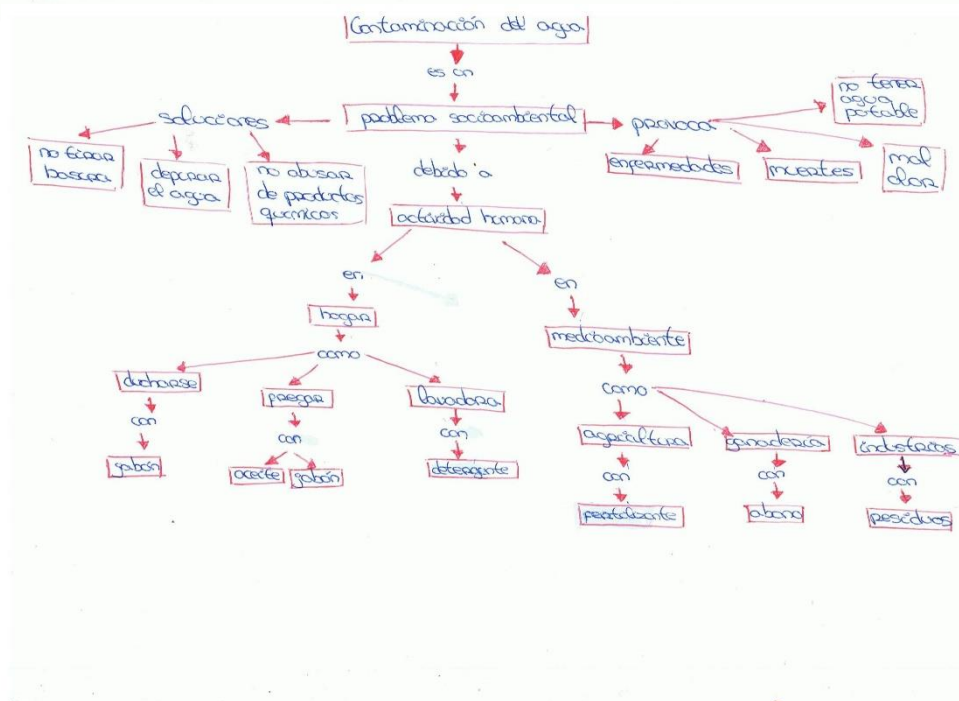 Contaminación del agua
es un
problema socioambiental
soluciones
no tirar
basura
depurar
el agua
no abusar
de productos
químicos
provoca
no tener
agua
potable
enfermedades
muertes
mal
olor
debido a
actividad humana
en
hogar
como
ducharse
con
gabón
fregar
con
aceite
gabón
lavadora
con
detergente
en
medioambiente
como
agricultura
con
fertilizante
ganadería
con
abono
industrias
con
residuos